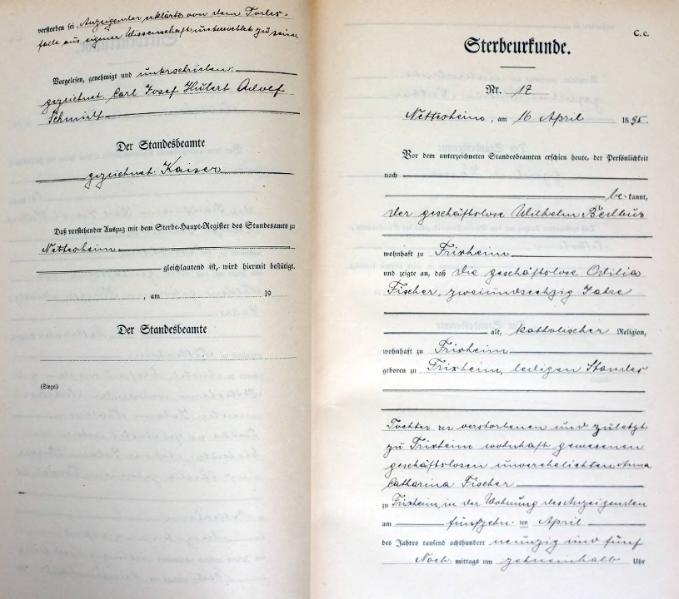 verstorben sei. Anzeigender erklärte von dem Todes-
falle aus eigener Wissenschaft unterrichtet zu sein.
Vorgelesen, genehmigt und unterschrieben.
gezeichnet: Carl Josef Hubert Adolf
Schmidt.
Der Standesbeamte
gezeichnet: Kaiser
Daß vorstehender Auszug mit dem Sterbe-Haupt-Register des Standesamts zu
Nettersheim
gleichlautend ist, wird hiermit bestätigt.
, am 19
Der Standesbeamte
(Siegel)
C. c.
Sterbeurkunde.
Nr. 17
, am 16 April 1895.
Vor dem unterzeichneten Standesbeamten erschien heute, der Persönlichkeit
nach
be kannt,
der geschäftslose Wilhelm
wohnhaft zu Frixheim
und zeigte an, daß die geschäftslose Odilia
Fischer, zweiundsechzig Jahre
alt, katholischer Religion,
wohnhaft zu Frixheim
geboren zu Frixheim, ledigen Standes
Tochter der verstorbenen und zuletzt
zu Frixheim wohnhaft gewesenen
geschäftslosen unverehelichten Anna
Catharina Fischer
zu Frixheim, in der Wohnung des Anzeigenden
am fünfzehn ten April
des Jahres tausend achthundert neunzig und fünf
Nach mittags um zehneinhalb Uhr